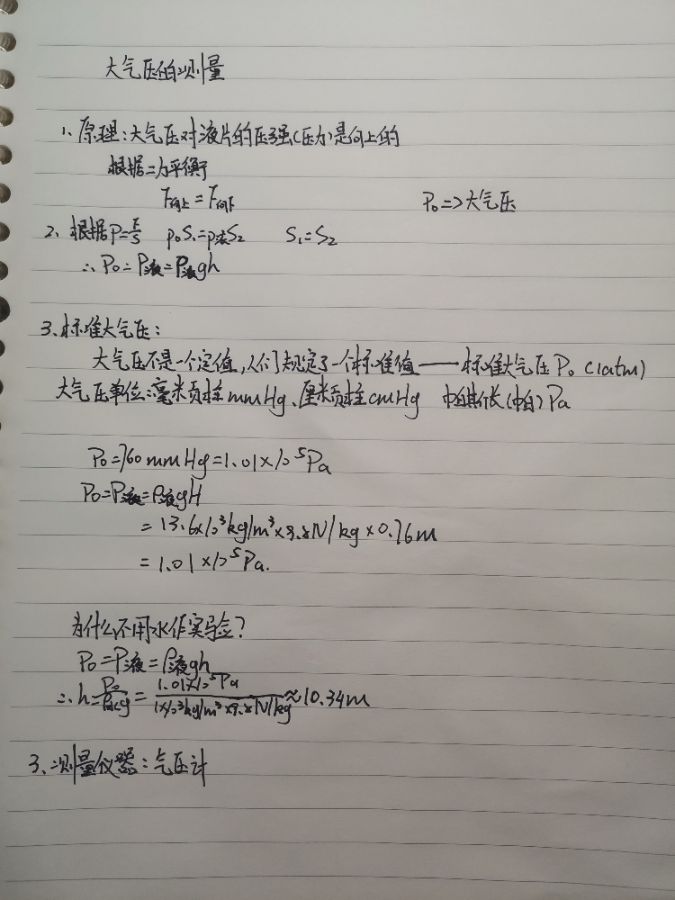 大气压的测量
1、原理:大气压对液片的压强(压力)是向上的
根据二力平衡
F向上=F向下
P₀=>大气压
2、根据P=F/S P₀S₁=P液S₂ S₁=S₂
∴P₀=P液=ρ液gh
3.标准大气压:
大气压不是一个定值,人们规定了一个标准值——标准大气压P₀(1atm)
大气压单位:毫米汞柱mmHg、厘米汞柱cmHg 帕斯长(帕)Pa
P₀=760mmHg=1.01×10⁵Pa
P₀=P液=ρ液gH
=13.6×10³kg/m³×9.8N/kg×0.76m
=1.01×10⁵Pa.
为什么不用水作实验?
P₀=P液=ρ液gh
∴h==1.01×10⁵Pa/1×10³kg/m³×9.8N/kg≈10.34m
3、测量仪器:气压计